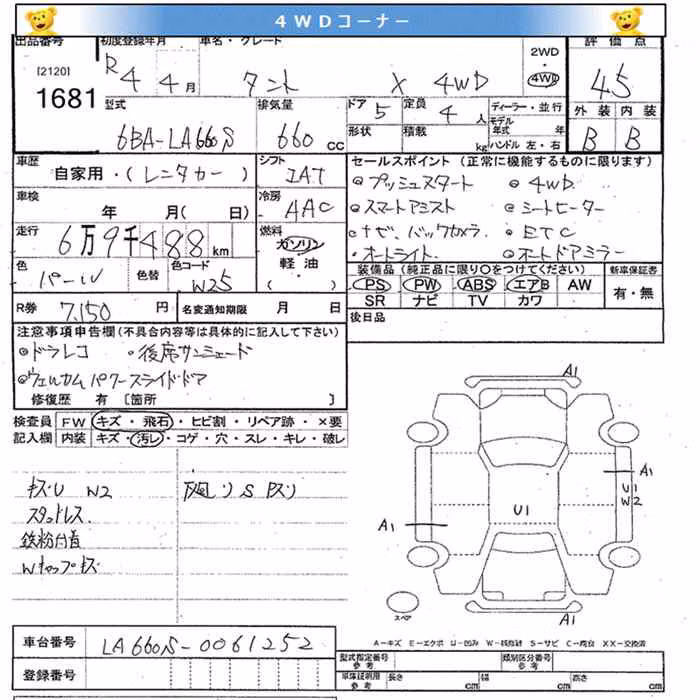 4WDコーナー
出品番号 初度登録年月 車名・グレード 2WD 評価点
[2120] R4年4月 タント X 4WD 4WD 4.5
1681
型式 排気量 ドア 5 定員 4人 ディーラー・並行 外装 内装
6BA-LA660S 660cc 形状 積載 kg モデル年式 年 ハンドル 左・右 B B
車歴 自家用・(レンタカー) シフト IAT セールスポイント (正常に機能するものに限ります)
◎プッシュスタート ◎4WD
車検 年 月(日) 冷房 AAC ◎スマートアシスト ◎シートヒーター
走行 6万9千488km 燃料 ガソリン ・ナビ、バックカメラ ・ETC
軽油 ( ) ・オートライト ◎オートドアミラー
色 パール 色替 色コード W25 装備品 (純正品に限り○をつけてください) 新車保証書
PS PW ABS エアB AW 有・無
SR ナビ TV カワ
R券 7,150円 名変通知期限 月 日 後日品
注意事項申告欄(不具合内容等は具体的に記入して下さい)
◎ドラレコ ・後席サンシェード
◎ウェルカムパワースライドドア
修復歴 有 〔箇所 〕
検査員 FW キズ・飛石・ヒビ割・リペア跡・×要
記入欄 内装 キズ・汚レ・コゲ・穴・スレ・キレ・破レ
キズU W2 下廻りSキズリ
スタッドレス
鉄粉付着
Wキャップキズ
A1
A1
U1
W2
U1
A1
A1
スペア
A-キズ E-エクボ U-凹み W-板金跡 S-サビ C-腐食 XX-交換済
車台番号 LA660S-0061252
型式指定番号 参考 類別区分番号 参考
登録番号 車庫証明用 参考 長さ cm 幅 cm 高さ cm